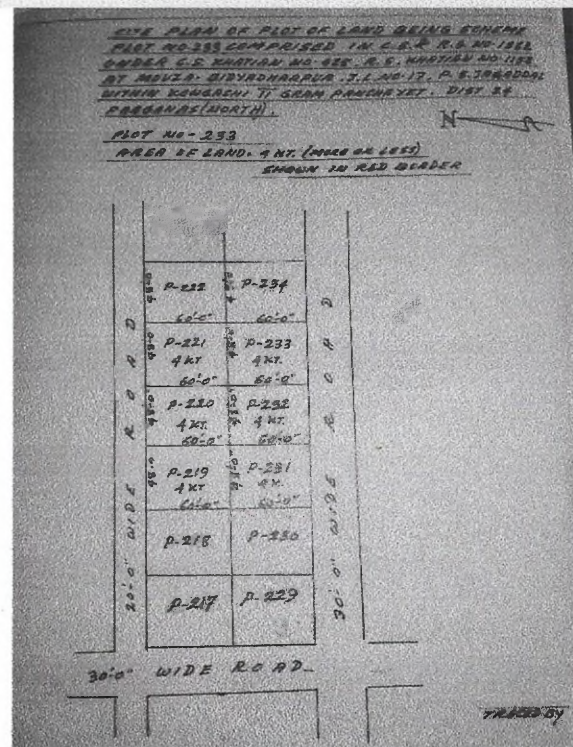 SITE PLAN OF PLOT OF LAND BEING SCHEME
PLOT NO-233 COMPRISED IN C.S. & R.S. NO-
UNDER C.S. KHATIAN NO R.S. KHATIAN NO
AT MOUZA- BIDYADHARPUR. J.L. NO-17. P.S. JAGADDAL
WITHIN II GRAM PANCHAYET. DIST 24
PARGANAS (NORTH).
N
PLOT NO - 233
AREA OF LAND. 4 KT. (MORE OR LESS)
SHOWN IN RED BORDER
P-222
P-234
60'-0"
60'-0"
P-221
4 KT
P-233
4 KT.
60'-0"
60'-0"
P-220
4 KT.
P-232
4 KT.
60'-0"
60'-0"
P-219
4 KT
P-231
4 K.
60'-0"
60'-0"
P-218
P-230
P-217
P-229
20'-0" WIDE ROAD
30'-0" WIDE ROAD
30'-0" WIDE ROAD
TRACED BY